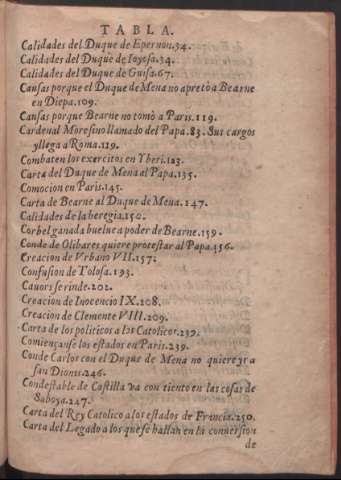 TABLA.
Calidades del Duque de Epernon.34.
Calidades del Duque de Ioyosa.34.
Calidades del Duque de Guisa.67.
Causas porque el Duque de Mena no apretò a Bearne
en Diepa.109.
Causas porque Bearne no tomò a Paris.119.
Cardenal Moresino llamado del Papa.83. Sus cargos
y llega a Roma.119.
Combaten los exercitos en Yberi.123.
Carta del Duque de Mena al Papa.135.
Comocion en Paris.145.
Carta de Bearne al Duque de Mena.147.
Calidades de la heregia.150.
Corbel ganada buelue a poder de Bearne.159.
Conde de Olibares quiere protestar al Papa.156.
Creacion de Vrbano VII.157.
Confusion de Tolosa.193.
Cauors se rinde.202.
Creacion de Inocencio IX.208.
Creacion de Clemente VIII.209.
Carta de los politicos a los Catolicos.239.
Comiençanse los estados en Paris.239.
Conde Carlos con el Duque de Mena no quiere yr a
san Dionis.246.
Condestable de Castilla va con tiento en las cosas de
Saboya.247.
Carta del Rey Catolico a los estados de Francia.250.
Carta del Legado a los que se hallan en la conuersion
de